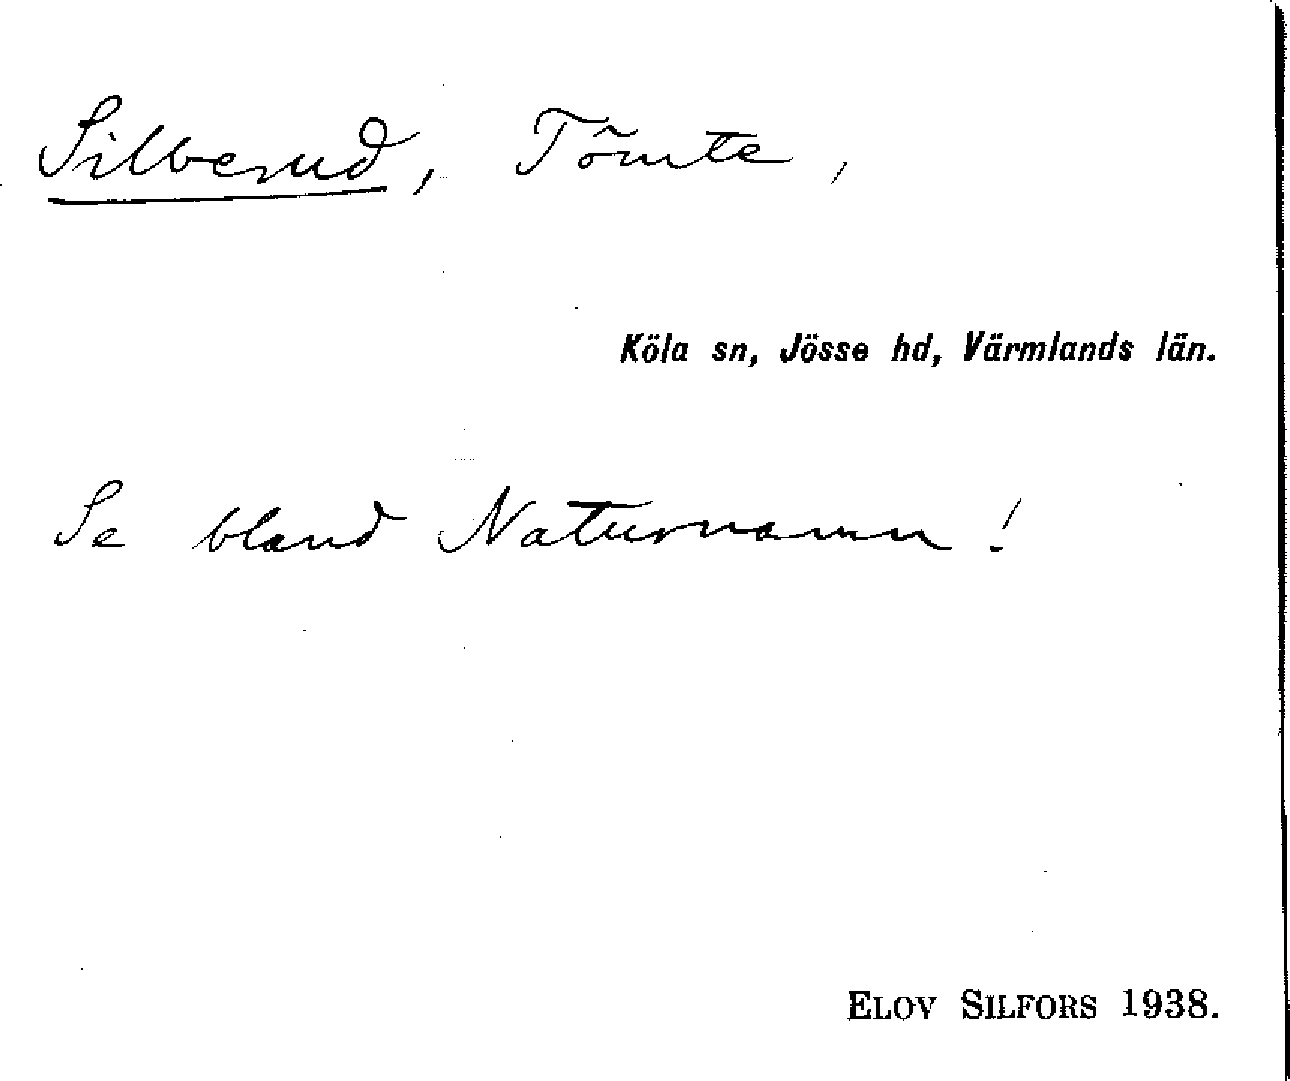 Silberud, Tömte,
Köla sn, Jösse hd, Värmlands län.
Se bland Naturnamn!
ELOV SILFORS 1938.